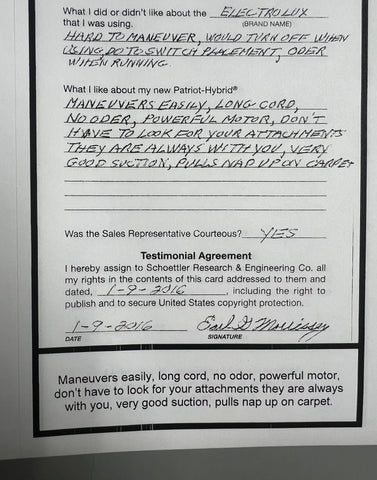 What I did or didn't like about the ELECTROLUX
(BRAND NAME)
that I was using.
HARD TO MANEUVER, WOULD TURN OFF WHEN
USING, DO TO SWITCH PLACEMENT, ODER
WHEN RUNNING.
What I like about my new Patriot-Hybrid®
MANEUVERS EASILY, LONG CORD,
NO ODER, POWERFUL MOTOR, DON'T
HAVE TO LOOK FOR YOUR ATTACHMENTS
THEY ARE ALWAYS WITH YOU, VERY
GOOD SUCTION, PULLS NAP UP ON CARPET
Was the Sales Representative Courteous? YES
Testimonial Agreement
I hereby assign to Schoettler Research & Engineering Co. all
my rights in the contents of this card addressed to them and
dated, 1-9-2016, including the right to
publish and to secure United States copyright protection.
1-9-2016 Earl G Morrissey
DATE SIGNATURE
Maneuvers easily, long cord, no odor, powerful motor,
don't have to look for your attachments they are always
with you, very good suction, pulls nap up on carpet.